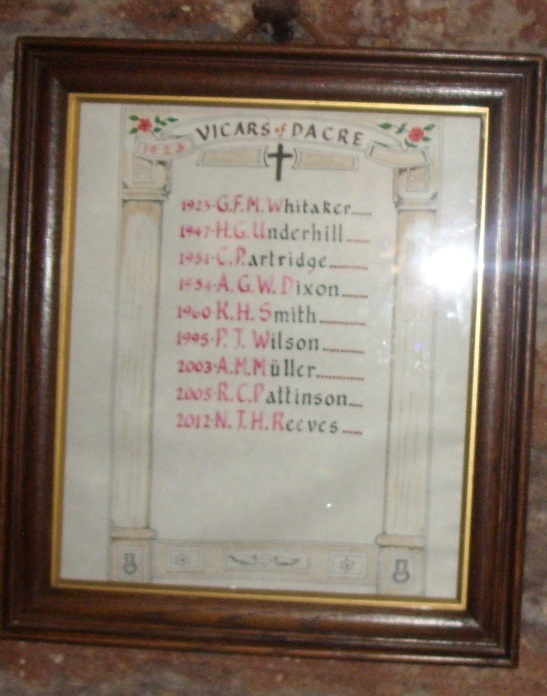 VICARS of DACRE
1923
1923·G.F.M. Whitaker......
1947·H.G. Underhill......
1951·C.P. artridge.........
1954·A.G.W. Dixon......
1960·K.H. Smith..........
1995·P.T. Wilson..........
2003·A.M. Müller...........
2005·R.C. Pattinson....
2012·N.T.H. Reeves.....